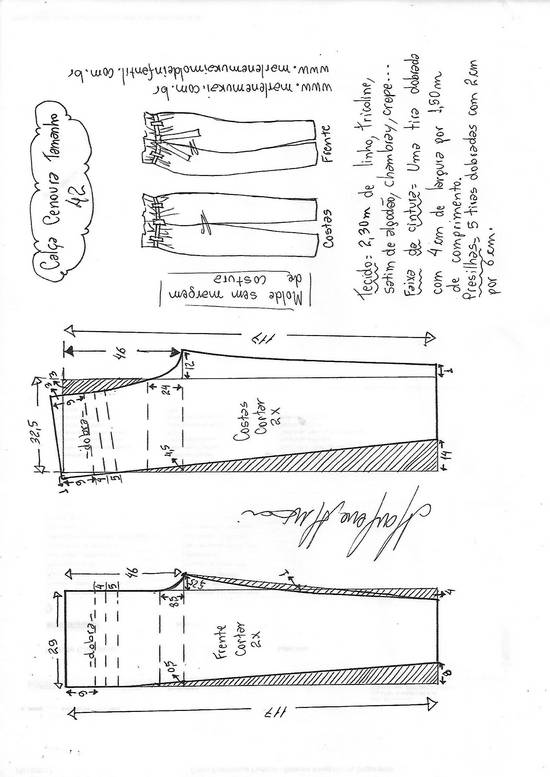 Calça Cenoura Tamanho
42
www.marlenemukai.com.br
www.marlenemukaimoldeinfantil.com.br
Frente
Costas
Molde sem margem
de costura
Tecido: 2,30m de linho, tricoline,
satim de algodão, chambray, crepe...
Faixa de cintura = Uma tira dobrada
com 4 cm de largura por 1,50m
de comprimento.
Presilhas, 5 tiras dobradas com 2cm
por 6cm.
117
46
3
3
12
24
1
32,5
6
-dobra-
4
5
4,5
Costas
Cortar
2X
14
6
4
5
Marlene Mukai
46
4
5
5,5
1
4
29
-dobra-
Frente
Cortar
2X
0,5
8
6
117